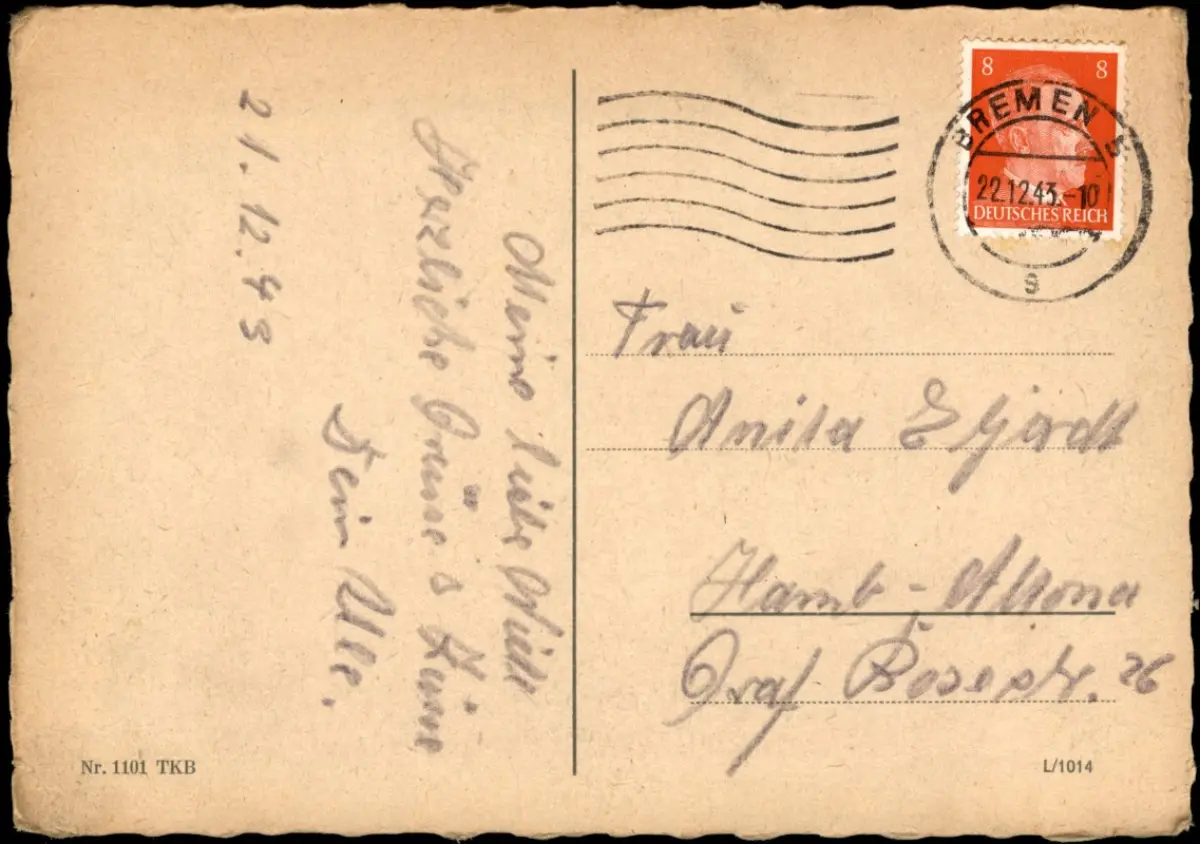 21.12.43
Meine liebe
Herzliche Grüsse &
Dein
Nr. 1101 TKB
8 8
BREMEN 5
22.12.43.-10
DEUTSCHES REICH
s
Frau
Anita
Hamb-Altona
Graf Bosestr. 26
L/1014